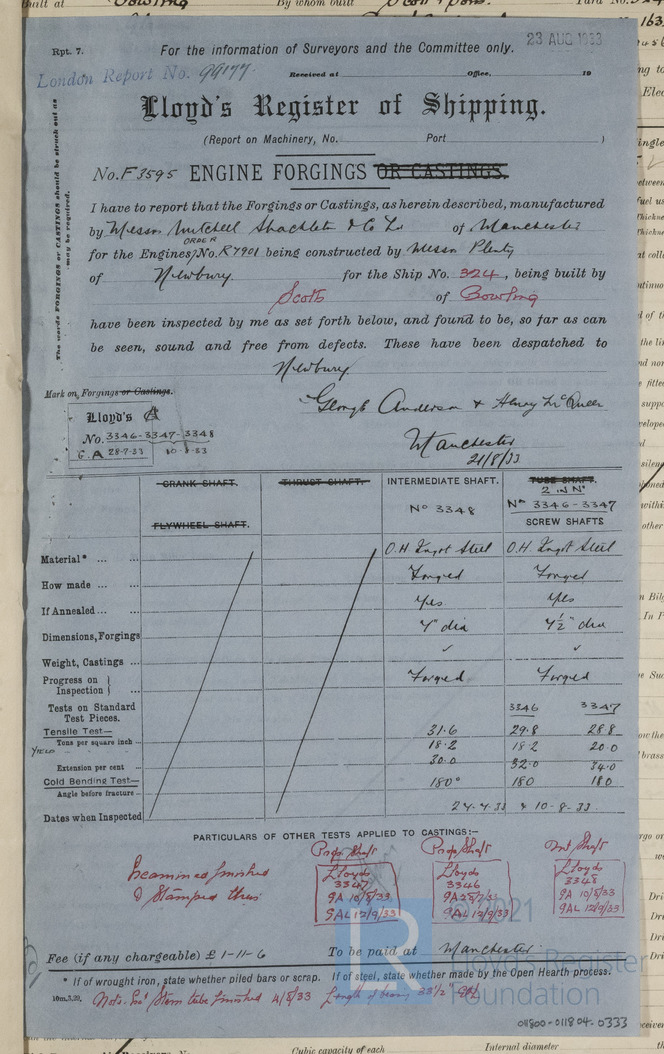 uilt at Bowling By whom built Scott & Sons. Yard No. 324
Rpt. 7. For the information of Surveyors and the Committee only. 23 AUG 1933
London Report No. 99177. Received at Office, 19
Lloyd's Register of Shipping.
(Report on Machinery, No. Port )
The words FORGINGS or CASTINGS should be struck out as may be required.
No. F 3595 ENGINE FORGINGS OR CASTINGS.
I have to report that the Forgings or Castings, as herein described, manufactured
by Messrs Mitchell Shackleton & Co Ld of Manchester
ORDER
for the Engines, No. R7901 being constructed by Messrs Plenty
of Newbury. for the Ship No. 324, being built by
Scotts of Bowling
have been inspected by me as set forth below, and found to be, so far as can
be seen, sound and free from defects. These have been despatched to
Newbury
Mark on Forgings or Castings.
George Anderson & Henry McQueen
Lloyd's
No. 3346-3347-3348
G.A 28-7-33 10-8-33
Manchester
21/8/33
CRANK SHAFT. THRUST SHAFT. INTERMEDIATE SHAFT. TUBE SHAFT.
2 IN No
No 3348 Nos 3346-3347
FLYWHEEL SHAFT. SCREW SHAFTS
Material* ... ... O.H Ingot Steel O.H Ingot Steel
How made ... ... Forged Forged
If Annealed ... ... Yes Yes
Dimensions, Forgings 4" dia 4½" dia
Weight, Castings ... ✓ ✓
Progress on Inspection } ... Forged Forged
Tests on Standard Test Pieces. 3346 3347
Tensile Test— 31.6 29.8 28.8
Tons per square inch ...
YIELD 18.2 18.2 20.0
Extension per cent ... 30.0 32.0 34.0
Cold Bending Test— 180° 180 180
Angle before fracture ...
Dates when Inspected 24.4.33 & 10-8-33.
PARTICULARS OF OTHER TESTS APPLIED TO CASTINGS:—
Prop. Shaft Prop. Shaft Int Shaft
Examined finished
& Stamped thus
Lloyds Lloyds Lloyds
3347 3346 3348
GA 10/8/33 GA 28/7/33 GA 10/8/33
GAL 12/9/33 GAL 12/9/33 GAL 12/9/33
© 2021
Lloyd's Register
Foundation
LR
Fee (if any chargeable) £ 1-11-6 To be paid at Manchester.
* If of wrought iron, state whether piled bars or scrap. If of steel, state whether made by the Open Hearth process.
10m,5,20. Note. Stern tube finished 4/8/33 Length of 23½"
011800-011804-0333
Cubic capacity of each Internal diameter